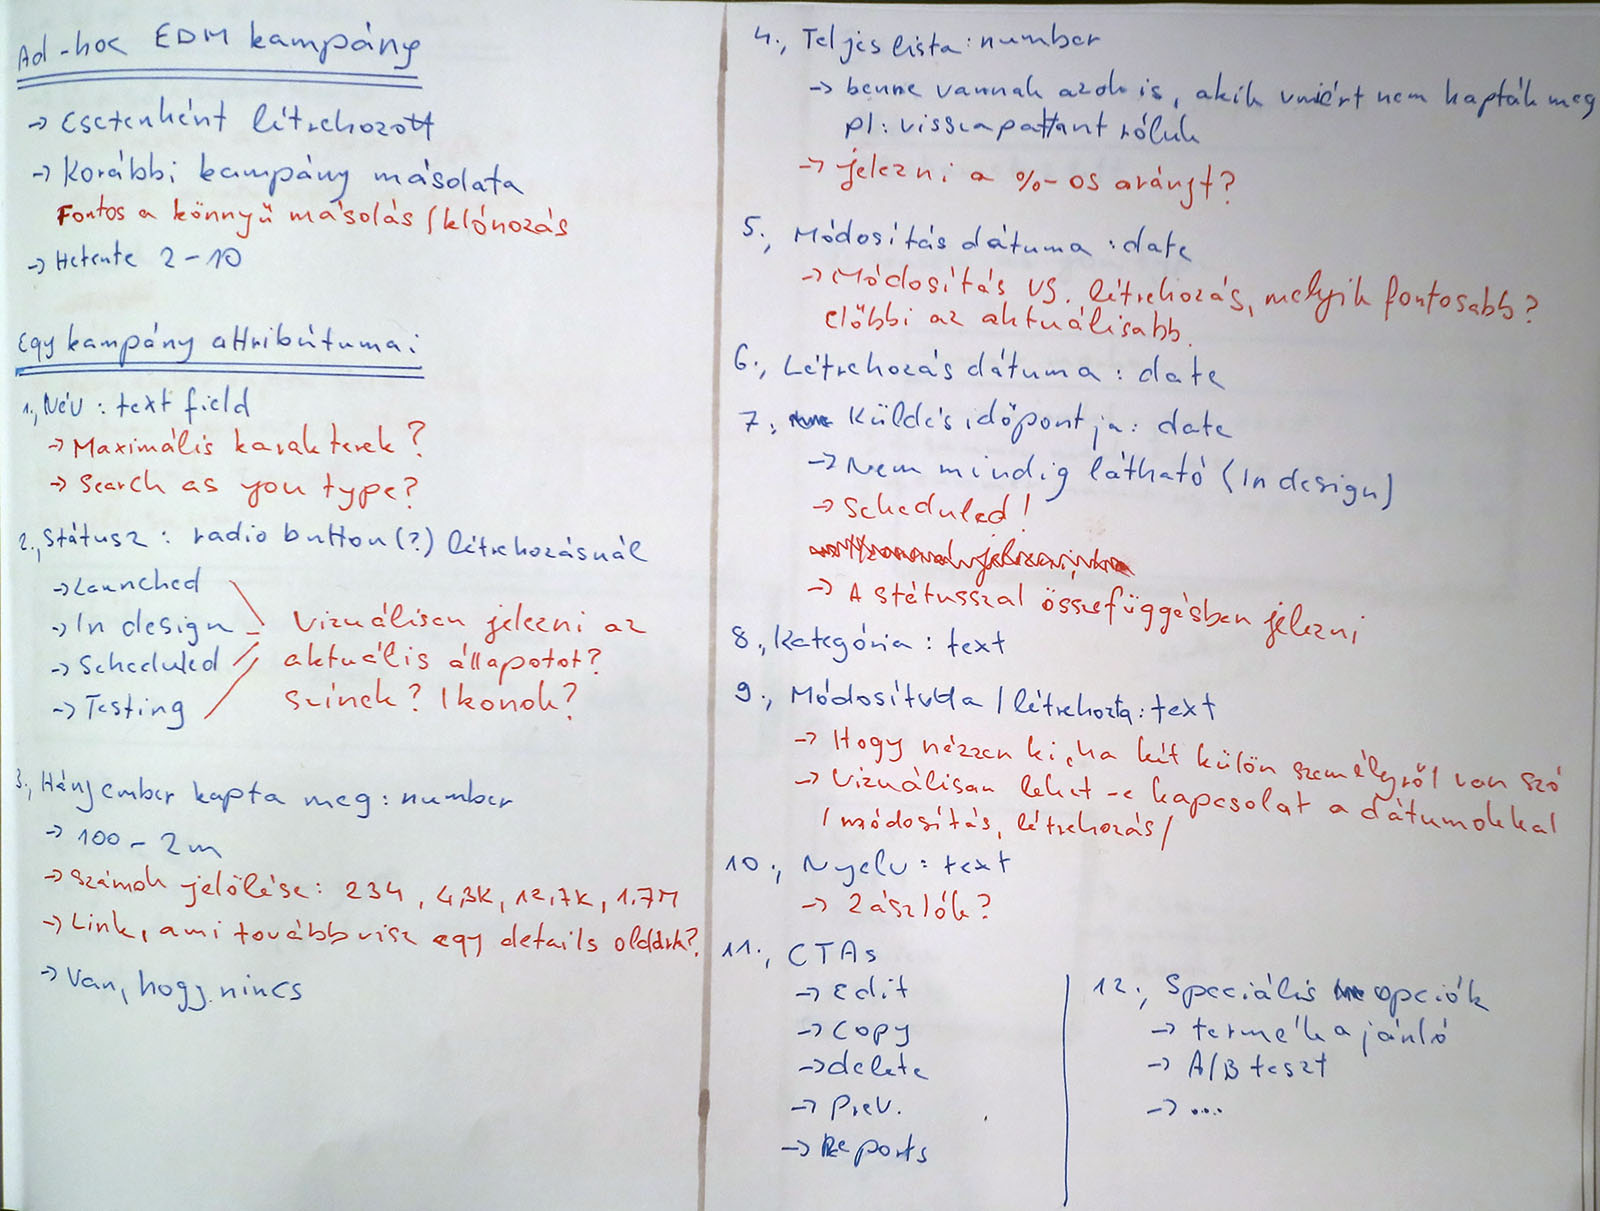 Ad-hoc EDM kampány
→ Esetenként létrehozott
→ Korábbi kampány másolata
Fontos a könnyű másolás / klónozás
→ Hetente 2-10
Egy kampány attribútumai
1., Név: text field
→ Maximális karakterek?
→ Search as you type?
2., Státusz: radio button(?) létrehozásnál
→ Launched
→ In design
→ Scheduled
→ Testing
Vizuálisan jelezni az
aktuális állapotot?
Színek? Ikonok?
3., Hány ember kapta meg: number
→ 100-2m
→ Számok jelölése: 234, 4,3K, 12,7K, 1,7M
→ Link, ami továbbvisz egy details oldalra?
→ Van, hogy nincs
4., Teljes lista: number
→ benne vannak azok is, akik vmiért nem kapták meg
pl: visszapattant róluk
→ jelezni a %-os arányt?
5., Módosítás dátuma: date
→ Módosítás vs. létrehozás, melyik fontosabb?
Előbbi az aktuálisabb.
6., Létrehozás dátuma: date
7., Küldés időpontja: date
→ Nem mindig látható (In design)
→ Scheduled!
→ A státusszal összefüggésben jelezni
8., Kategória: text
9., Módosította / létrehozta: text
→ Hogy nézzen ki, ha két külön személyről van szó
→ Vizuálisan lehet-e kapcsolat a dátumokkal
/módosítás, létrehozás/
10., Nyelv: text
→ Zászlók?
11., CTAs
→ Edit
→ Copy
→ delete
→ Prev.
→ Reports
12., Speciális opciók
→ termék ajánló
→ A/B teszt
→ ...